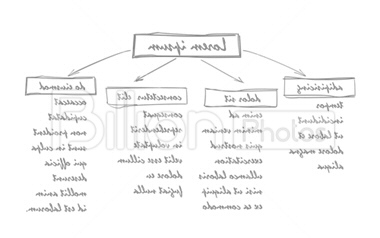 Lorem ipsum
adipisicing
tempor
incididunt
ut labore et
dolore magna
aliqua
dolor sit
enim ad
minim veniam
quis nostrud
exercitation
ullamco laboris
nisi ut aliquip
ex ea commodo
consectetur elit
consequat
reprehenderit
in voluptate
velit esse cillum
dolore eu
fugiat nulla
do eiusmod
occaecat
cupidatat
non proident
sunt in culpa
qui officia
deserunt
mollit anim
id est laborum.
Billion
Photos